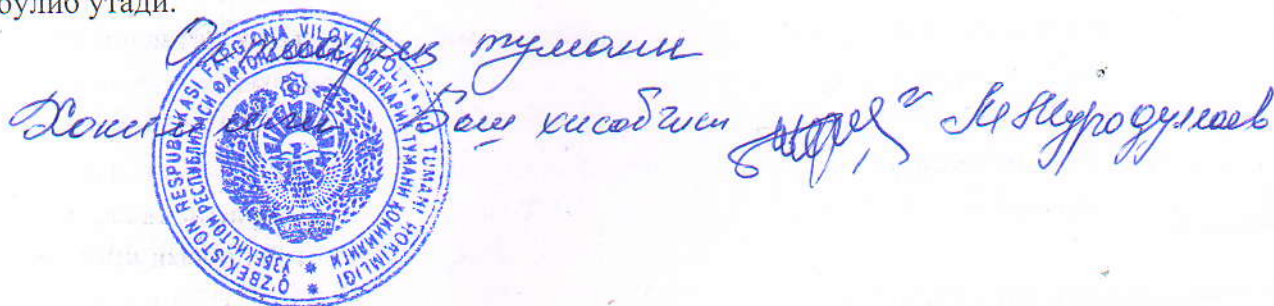 бўлиб ўтади.
Олтиариқ тумани
Хокимлиги Бош хисобчиси М Муродуллаев
O'ZBEKISTON RESPUBLIKASI FARG'ONA VILOYATI OLTIARIQ TUMANI HOKIMLIGI
ЎЗБЕКИСТОН РЕСПУБЛИКАСИ ФАРҒОНА ВИЛОЯТИ ОЛТИАРИҚ ТУМАНИ ҲОКИМЛИГИ